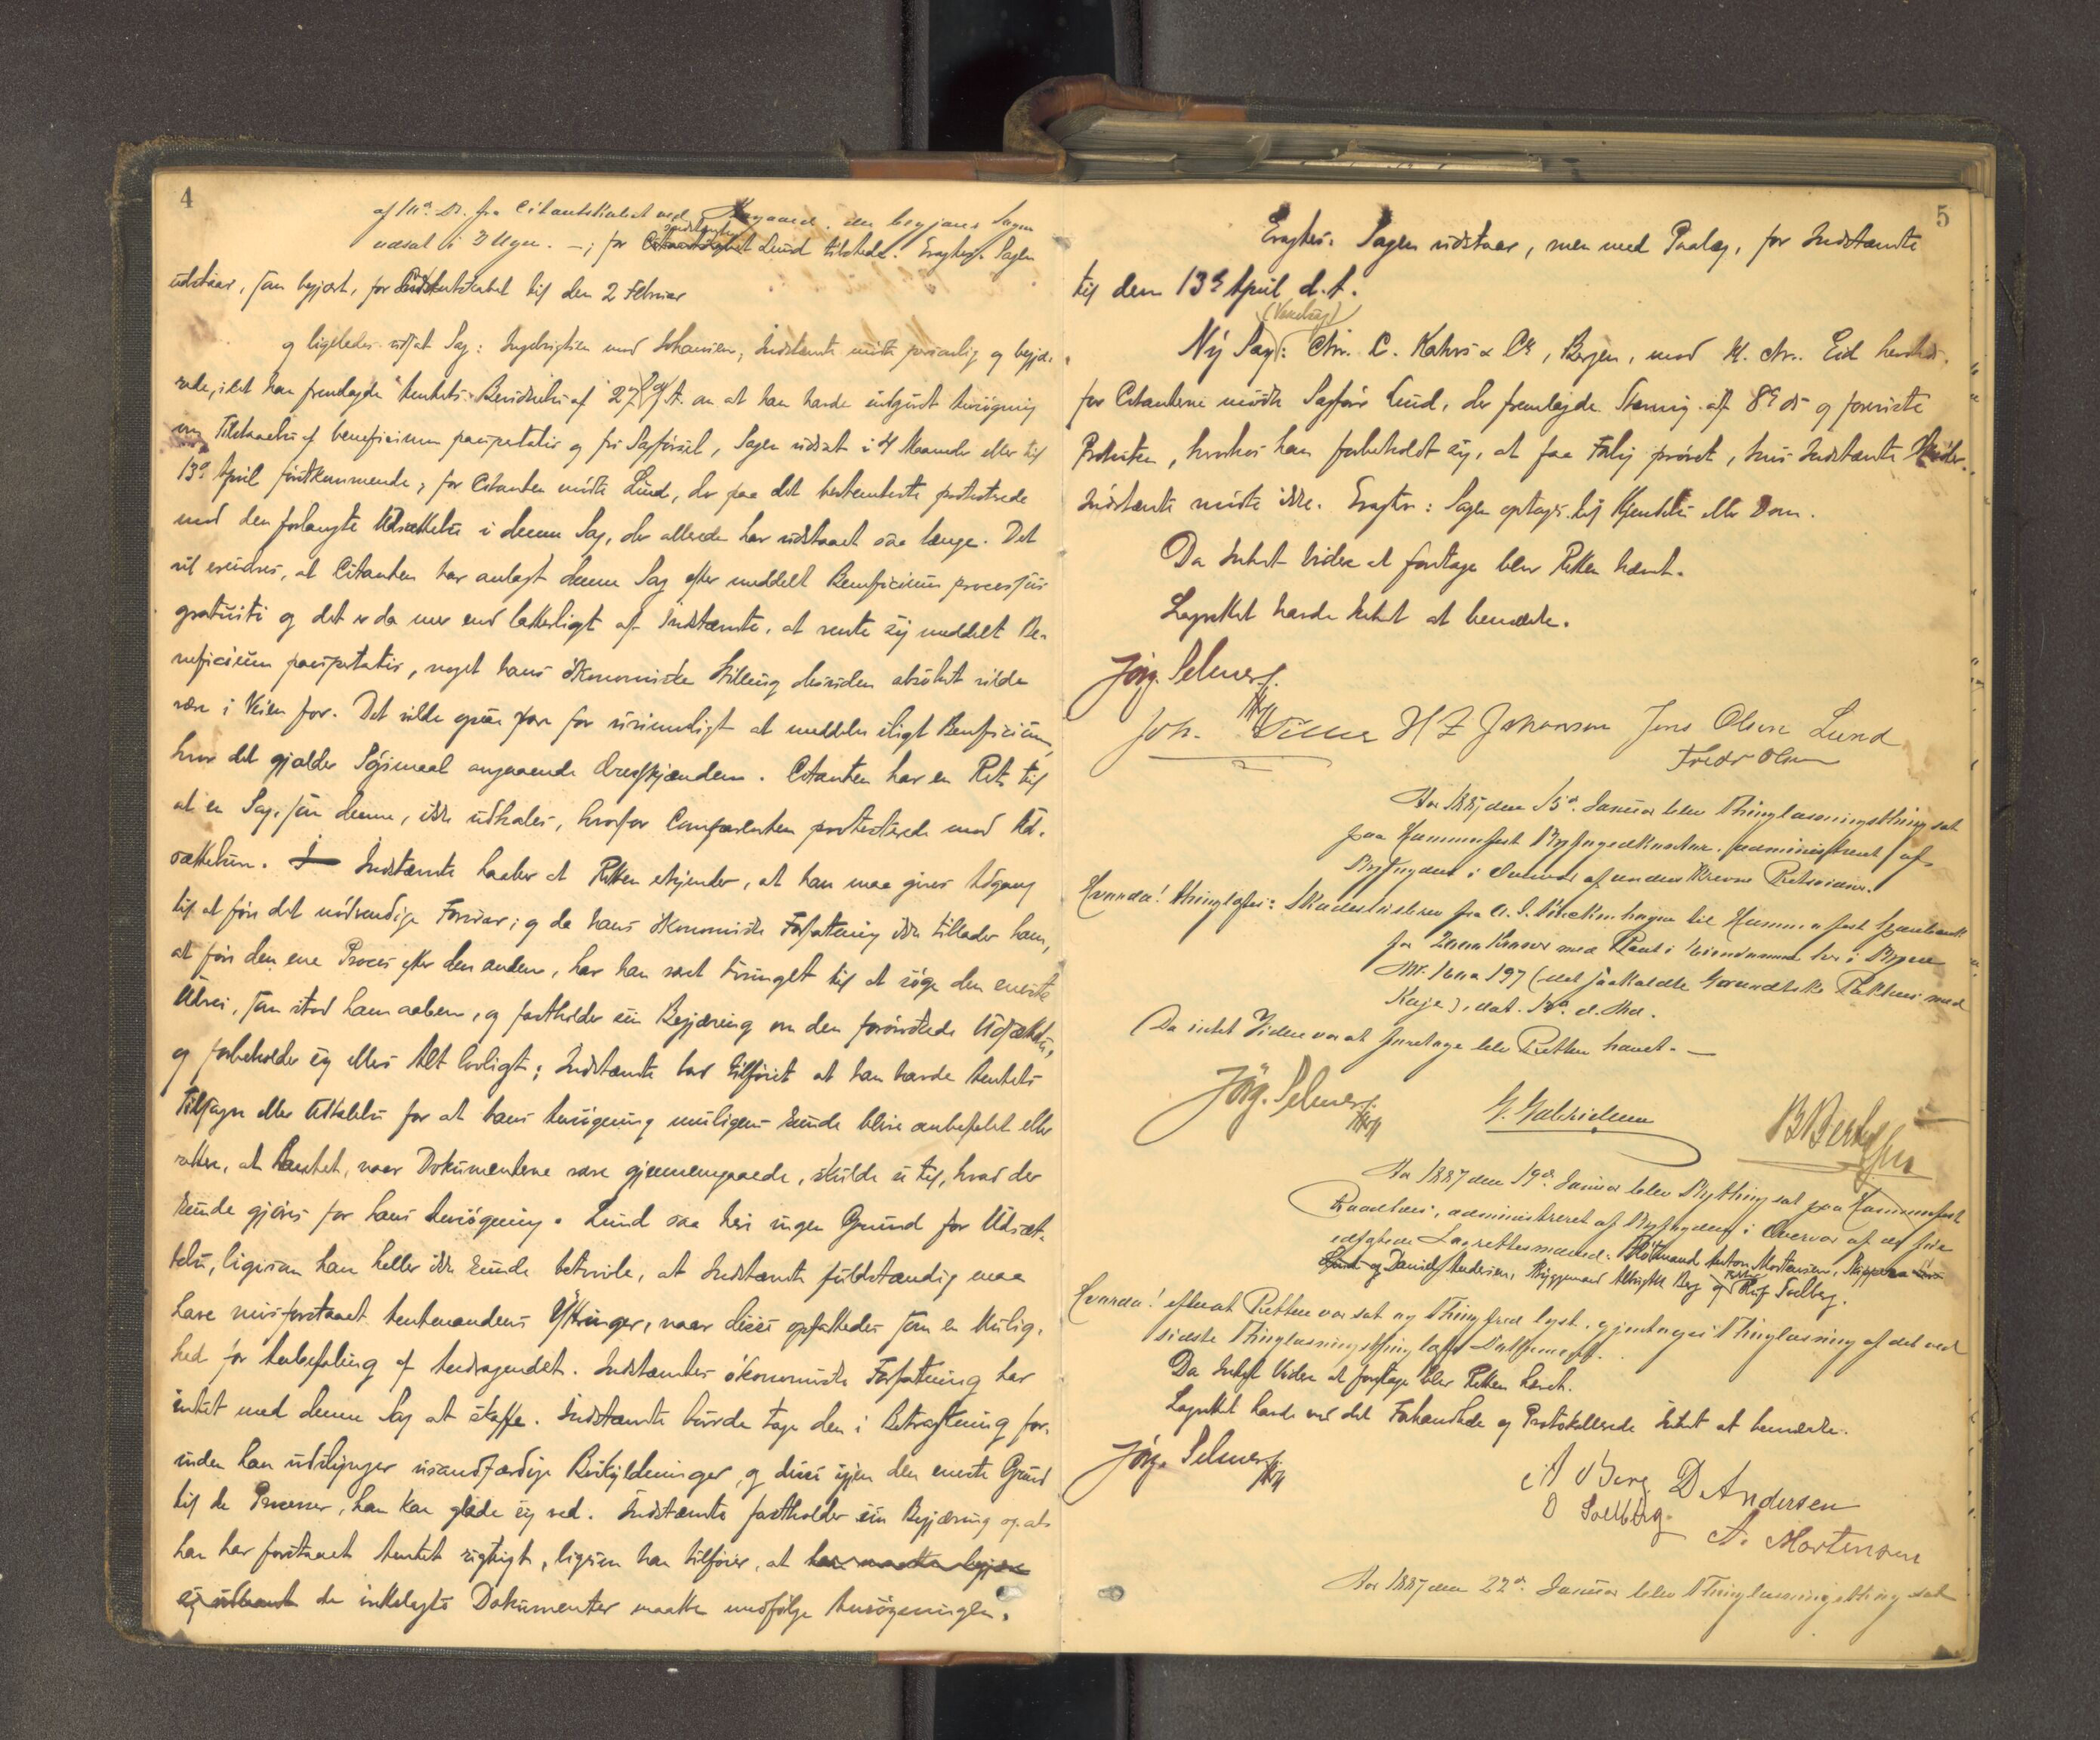 4
af 11te ds. fra Citantskabet ved Aagaard, der begjærer Sagen
udsat i 3 Uger. —; for Indstevnte Lund tilstede. Eragtes: Sagen
udstaar, som begjært, for Citantskabet til den 2 Februar
og ligeledes udsat Sag: Ingebrigtsen mod Johansen; Indstævnte mødte personlig og begjæ-
rede, idet han fremlagde Amtets Bevidnelse af 27 f. A. om at han havde indgivet Ansøgning
om Tilstaaelse af beneficium paupertatis og fri Sagførsel, Sagen udsat i 4 Maaneder eller til
13de April førstkommende; for Citanten mødte Lund, der paa det bestemteste protesterede
mod den forlangte Udsættelse i denne Sag, der allerede har udstaaet saa længe. Det
vil erindres, at Citanten har anlagt denne Sag efter meddelt Beneficium processus
gratuiti og det er da mer end latterligt af Indstævnte, at vente sig meddelt Be-
neficium paupertatis, noget hans økonomiske Stilling desuden absolut vilde
være i Veien for. Det vilde ogsaa være for urimeligt at meddeles sligt Beneficium,
hvor det gjælder Søgsmaal angaaende Æreskjænderi. Citanten har en Ret til
at en Sag, som denne, ikke udhales, hvorfor Comparenten protesterede mod Ud-
sættelsen. Indstævnte haaber at Retten erkjender, at han maa gives Adgang
til at føre det nødvendige Forsvar; og da hans økonomiske Forfatning ikke tillader ham,
at føre den ene Proces efter den anden, har han været tvunget til at søge den eneste
Udvei, som stod ham aaben, og fastholder sin Begjæring om den forønskede Udsættelse,
og forbeholder sig ellers Alt lovligt; Indstævnte bad tilført at han havde Amtets
Tilsagn eller Udtalelse for at hans Ansøgning muligens kunde blive anbefalet eller
rettere, at Amtet, naar Dokumenterne vare gjennemgaaede, skulde se til, hvad der
kunde gjøres for hans Ansøgning. Lund saa heri ingen Grund for Udsæt-
telse, ligesom han heller ikke kunde betvivle, at Indstævnte fuldstændig maa
have misforstaaet Amtmandens Yttringer, naar disse opfattedes som en Mulig-
hed for Anbefaling af Andragendet. Indstævntes økonomiske Forfatning har
intet med denne Sag at skaffe. Indstævnte burde tage den i Betragtning for-
inden han udslynger usandfærdige Beskyldninger, og disse igjen den eneste Grund
til de Processer, han kan glæde sig ved. Indstævnte fastholder sin Begjæring og at
han har forstaaet Amtet rigtigt, ligesom han tilføier, at han maatte begjære
sig udlaant de indelagte Dokumenter maatte medfølge Ansøgningen.
5
Eragtes: Sagen udstaar, men med Paalæg, for Indstævnte
til den 13de April d.A.
(Vexelsag)
Ny Sag: Chr. C. Kahrs & Co, Bergen, mod K. Chr. Eid herstds.
for Citanterne mødte Sagfører Lund, der fremlagde Stævning af 8de ds og foreviste
Protesten, hvorhos han forbeholdt sig, at faa Følg prøvet, hvis Indstævnte
Indstævnte mødte ikke. Eragtes: Sagen optages til Kjendelse eller Dom.
Da Intet videre at foretage blev Retten hævet.
Lagrettet havde Intet at bemærke.
Jörg. Selmer
Joh. H Z Johanson Jens Olsen Lund
Fredr Olsen
Aar 1887, den 15de Januar blev Thinglæsningsthing sat
paa Hammerfest Byfogedkontor, administreret af
Byfogden i Overvær af underskrevne Retsvidner.
Hvorda! thinglæstes: Skadesløsbrev fra til Hammerfest Sparebank
for Kroner med Pant i Eiendommen her i Byen
Mt. No 197 (det saakaldte Pakhus med
Kaje), dat. d. Md.
Da intet Videre var at foretage blev Retten hævet. —
Jörg. Selmer G. Gabrielsen
Aar 1887 den 19de Januar blev Bything sat paa Hammerfest
Raadhus, administreret af Byfogden i Overvær af de fire
edfæstede Lagrettesmænd: Anton Mortensen,
Lund og Daniel Andersen, Bryggemand Berg og Solberg.
Hvorda! efterat Retten var sat og Thingfred lyst, gjentoges Thinglæsning af det ved
sidste Thinglæsningsthing læste Dokument.
Da Intet Videre at foretage blev Retten hævet.
Lagrettet havde ved det Forhandlede og Protokollerede Intet at bemærke.
Jörg. Selmer
A Berg D. Andersen
O Sollberg. A. Mortensen
Aar 1887 den 22de Januar blev Thinglæsningsthing sat